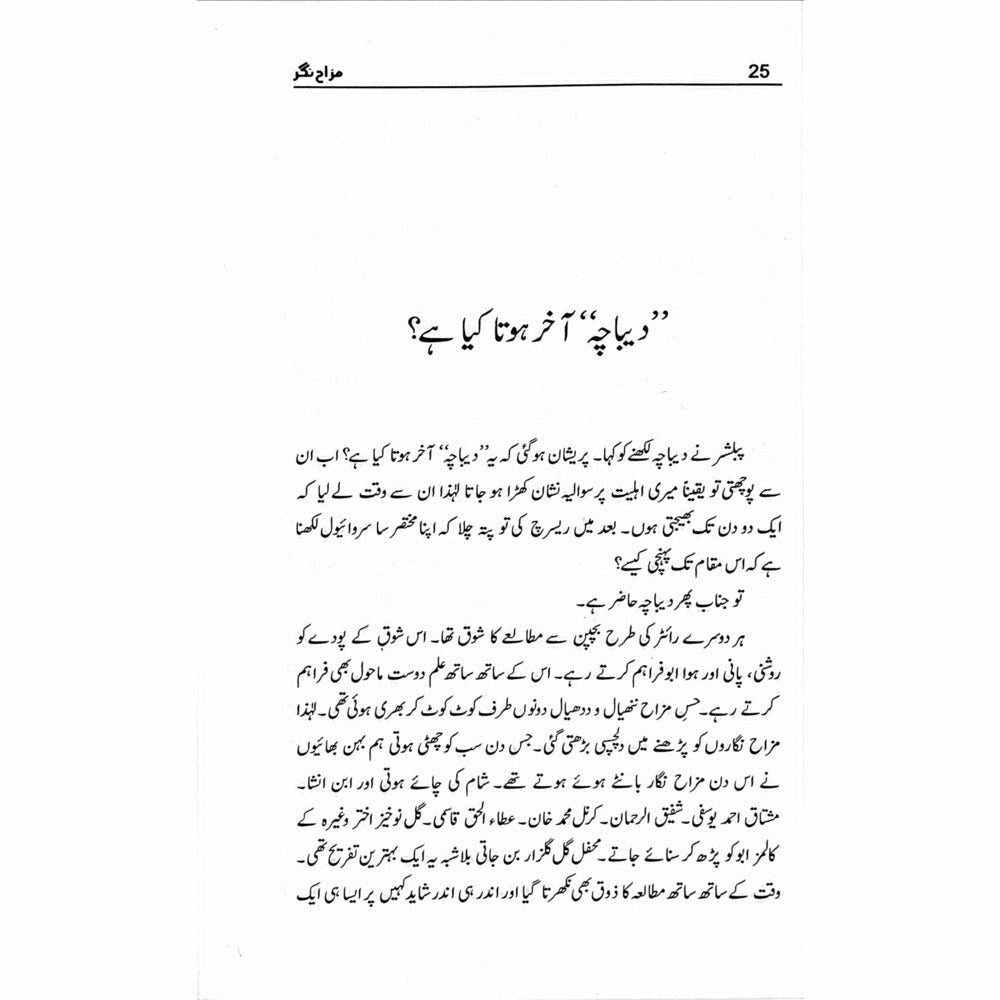 25
مزاح نگر
’’دیباچہ‘‘ آخر ہوتا کیا ہے؟
پبلشر نے دیباچہ لکھنے کو کہا۔ پریشان ہوگئی کہ یہ ’’دیباچہ‘‘ آخر ہوتا کیا ہے؟ اب ان
سے پوچھتی تو یقیناً میری اہلیت پر سوالیہ نشان کھڑا ہو جاتا لہٰذا ان سے وقت لے لیا کہ
ایک دو دن تک بھیجتی ہوں۔ بعد میں ریسرچ کی تو پتہ چلا کہ اپنا مختصر سا سروائیول لکھنا
ہے کہ اس مقام تک پہنچی کیسے؟
تو جناب پھر دیباچہ حاضر ہے۔
ہر دوسرے رائٹر کی طرح بچپن سے مطالعے کا شوق تھا۔ اس شوق کے پودے کو
روشنی، پانی اور ہوا ابو فراہم کرتے رہے۔ اس کے ساتھ ساتھ علم دوست ماحول بھی فراہم
کرتے رہے۔ حسِ مزاح ننھیال و ددھیال دونوں طرف کوٹ کوٹ کر بھری ہوئی تھی۔ لہٰذا
مزاح نگاروں کو پڑھنے میں دلچسپی بڑھتی گئی۔ جس دن سب کو چھٹی ہوتی ہم بہن بھائیوں
نے اس دن مزاح نگار بانٹے ہوئے ہوتے تھے۔ شام کی چائے ہوتی اور ابن انشا۔
مشتاق احمد یوسفی۔ شفیق الرحمان۔ کرنل محمد خان۔ عطاء الحق قاسمی۔ گل نوخیز اختر وغیرہ کے
کالمز ابو کو پڑھ کر سنائے جاتے۔ محفل گل گلزار بن جاتی بلاشبہ یہ ایک بہترین تفریح تھی۔
وقت کے ساتھ ساتھ مطالعہ کا ذوق بھی نکھرتا گیا اور اندر ہی اندر شاید کہیں پر ایسا ہی ایک